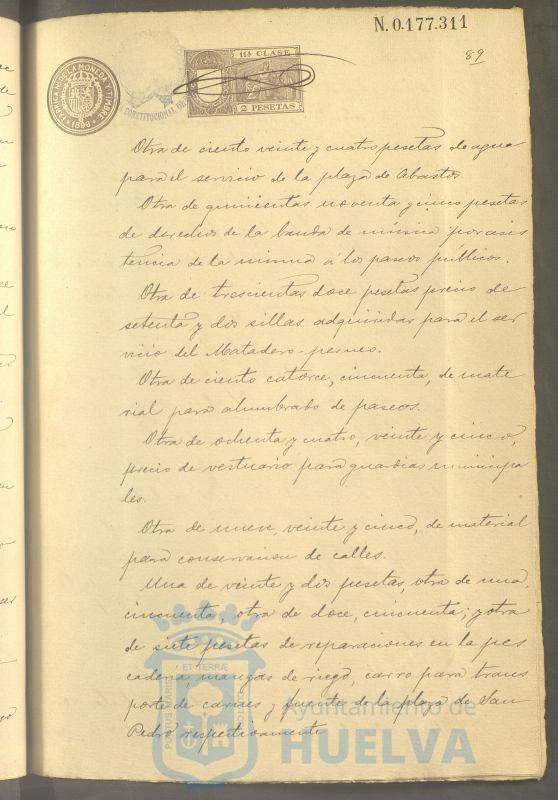 N. 0.177.311
89
FÁBRICA N. DE LA MONEDA Y TIMBRE
1898
CONSTITUCIONAL DE
11ª CLASE
2 PESETAS
Otra de ciento veinte y cuatro pesetas de agua
para el servicio de la plaza de Abastos.
Otra de quinientas noventa y cinco pesetas
de derechos de la banda de música por asis
tencia de la misma á los paseos publicos.
Otra de trescientas doce pesetas precio de
setenta y dos sillas adquiridas para el ser
vicio del Matadero
Otra de ciento catorce, cincuenta, de mate
rial para alumbrado de paseos.
Otra de ochenta y cuatro, veinte y cinco,
precio de vestuario para guardias municipa
les.
Otra de nueve, veinte y cinco, de material
para conservacion de calles.
Una de veinte y dos pesetas, otra de una,
cincuenta, otra de doce, cincuenta; y otra
de siete pesetas de reparaciones en la pes
cadería, mangas de riego, carro para trans
porte de carnes y fuente de la plaza de San
Pedro respectivamente
PORTUS MARIS ET TERRÆ CUSTODIA
Ayuntamiento de
HUELVA